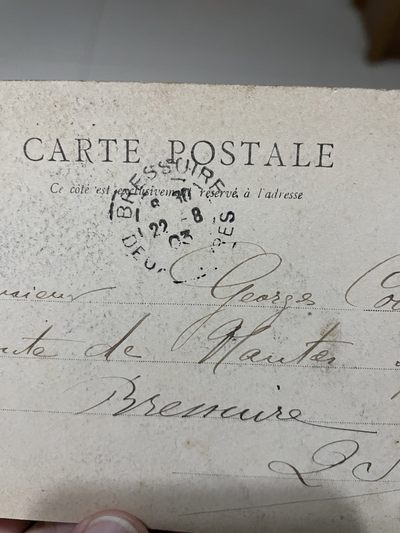 CARTE POSTALE
Ce côté est exclusivement réservé à l'adresse
BRESSUIRE
22 -8
03
DEUX SÈVRES
Georges
de Nantes
Bressuire
2 S